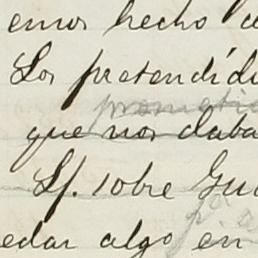 emos hecho a
Los pretendidi
prometi
que nos daba
Lf. sobre Gu
edar algo en